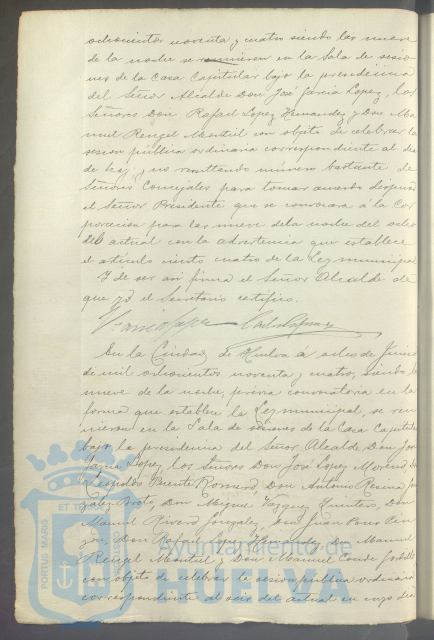 ochocientos noventa y cuatro siendo las nueve
de la noche se reunieron en la Sala de sesio
nes de la Casa Capitular bajo la presidencia
del Señor Alcalde Don José García Lopez, los
Señores Don Rafael Lopez Hernandez y Don Ma
nuel Rengel Montiel con objeto de celebrar la
sesion pública ordinaria correspondiente al dia
de hoy, y no resultando número bastante de
Señores Concejales para tomar acuerdo dispuso
el Señor Presidente que se convocara á la Cor
poracion para las nueve de la noche del ocho
del actual con la advertencia que establece
el artículo ciento cuatro de la Ley municipal
Y de ser asi firma el Señor Alcalde de
que yo el Secretario certifico.
En la Ciudad de Huelva a ocho de Junio
de mil ochocientos noventa y cuatro, siendo las
nueve de la noche, prévia convocatoria en la
forma que establece la Ley municipal, se reu
nieron en la Sala de sesiones de la Casa Capitular
bajo la presidencia del Señor Alcalde Don José
García Lopez, los Señores Don José Lopez Moreno, Don
Leopoldo Puente Romero, Don Antonio
Don Miguel Vazquez Don
Manuel Rivero Gonzalez, Don Juan
Don Rafael Lopez Hernandez, Don Manuel
Rengel Montiel y Don Manuel Conde
con objeto de celebrar la sesion pública ordinaria
correspondiente al seis del actual en cuyo dia
PORTUS MARIS
ET TERRÆ
Ayuntamiento de
HUELVA